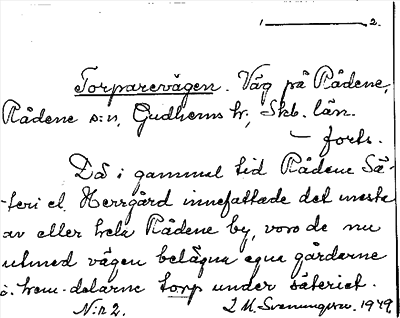 1 — 2.
Torparevägen. Väg på Rådene,
Rådene s:n, Gudhems hr, Skb. län.
— forts.
Då i gammal tid Rådene Sä-
-teri el. Herrgård innefattade det mesta
av eller hela Rådene by, voro de nu
utmed vägen belägna egna gårdarne
o. hem-delarne torp under säteriet.
N:r 2. L. M. Svenungsson. 1949.